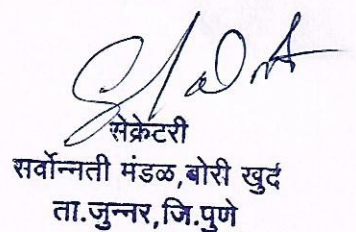 सेक्रेटरी
सर्वोन्नती मंडळ,बोरी खुर्द
ता.जुन्नर,जि.पुणे